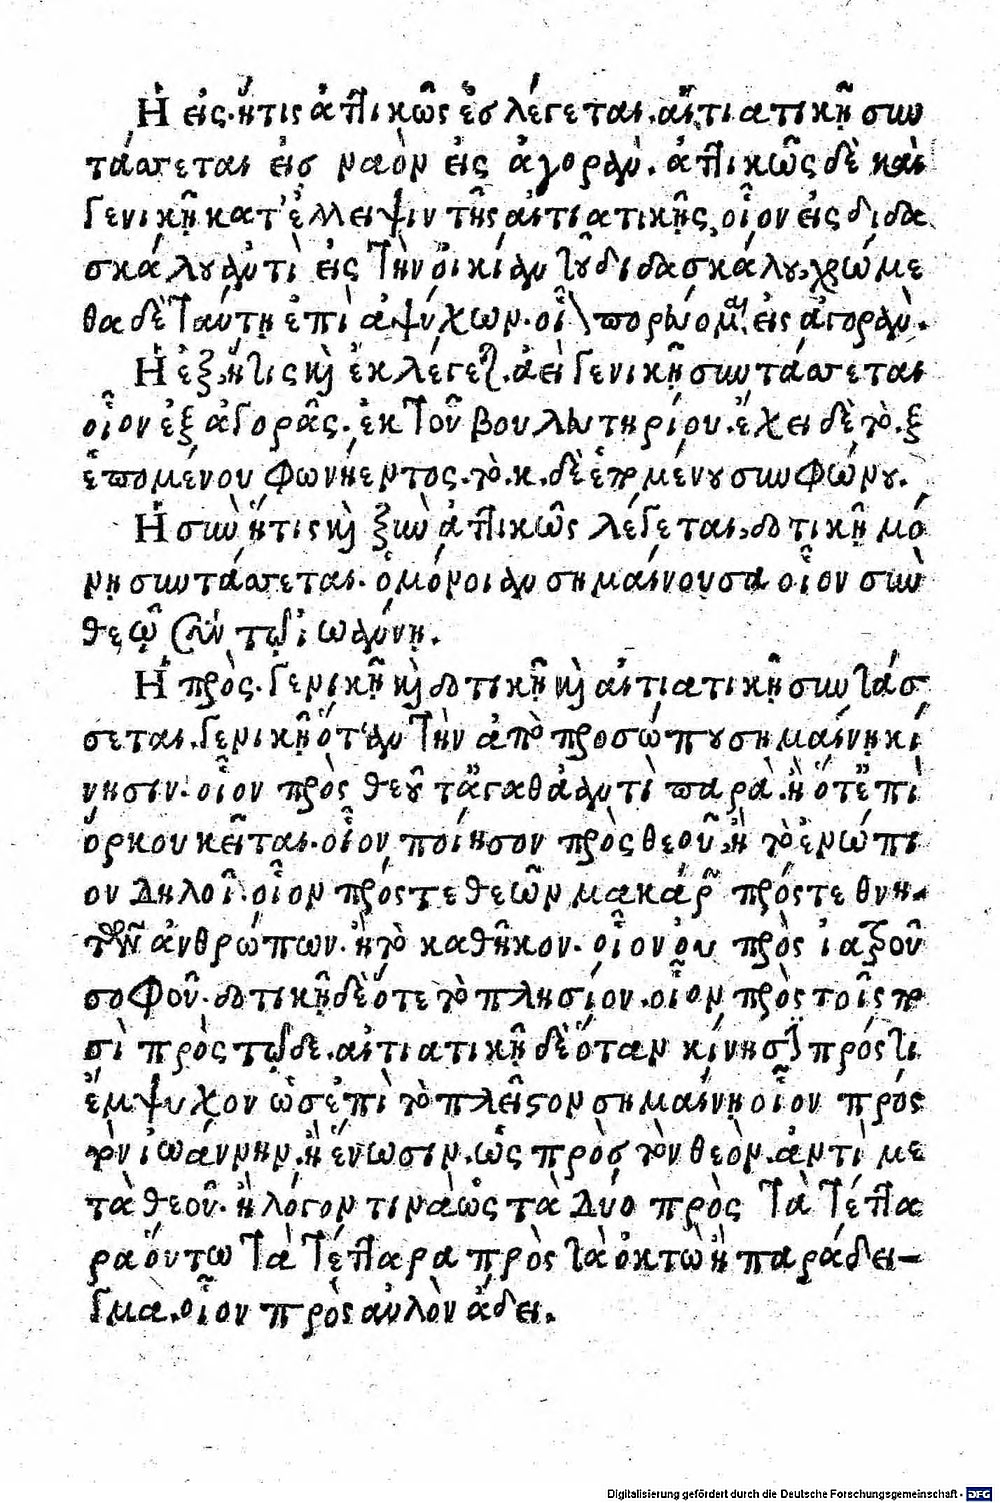 Ἡ εἰς. ἥτις ἀττικῶς ἐσ λέγεται. αἰτιατικῇ συν
τάσσεται εἰσ ναὸν εἰς ἀγοράν. ἀττικῶς δὲ καὶ
γενικῇ κατ' ἔλλειψιν τῆς αἰτιατικῆς, οἷον εἰς διδα
σκάλου ἀντὶ εἰς τὴν οἰκίαν τοῦ διδασκάλου, χρώμε
θα δὲ ταύτῃ ἐπὶ ἀψύχων. οἷον πορεύομαι εἰς ἀγοράν.
Ἡ ἐξ, ἥτις καὶ ἐκ λέγεται. ἀεὶ γενικῇ συντάσσεται
οἷον ἐξ ἀγορᾶς. ἐκ τοῦ βουλευτηρίου. ἔχει δὲ τὸ. ξ
ἑπομένου φωνήεντος. τὸ. κ. δὲ ἑπομένου συμφώνου.
Ἡ σιὺν ἥτις καὶ ξὺν ἀττικῶς λέγεται, δοτικῇ μό
νῃ συντάσσεται. ὁμόνοιαν σημαίνουσα οἷον σὺν
θεῷ σὺν τῷ ἰωάννῃ.
Ἡ πρὸς. γενικῇ καὶ δοτικῇ καὶ αἰτιατικῇ συντάσ
σεται. γενικῇ ὅτ' ἂν τὴν ἀπὸ προσώπου σημαίνῃ κί
νησιν. οἷον πρὸς θεοῦ τἄγαθὰ ἀντὶ παρὰ. ἢ ὅτ' ἐπὶ
ὅρκου κεῖται. οἷον ποίησον πρὸς θεοῦ, ἢ τὸ ἐνώπι
ον δηλοῖ. οἷον πρός τε θεῶν μακάρων πρός τε θνη
τῶν ἀνθρώπων. ἢ τὸ καθῆκον. οἷον οὐ πρὸς ἰατροῦ
σοφοῦ. δοτικῇ δὲ ὅτε τὸ πλησίον. οἷον πρὸς τοῖς πο
σὶ πρὸς τῷδε. αἰτιατικῇ δὲ ὅταν κίνησιν πρός τι
ἔμψυχον ὡσεπὶ τὸ πλεῖστον σημαίνῃ οἷον πρὸς
τὸν ἰωάννην. ἢ ἕνωσιν. ὡς πρὸσ τὸν θεὸν. ἀντὶ με
τὰ θεοῦ. ἢ λόγον τινὰ ὡς τὰ δύο πρὸς τὰ τέττα
ρα οὕτω τὰ τέτταρα πρὸς τὰ ὀκτὼ ἢ παράδει-
γμα. οἷον πρὸς αὐλὸν ᾄδει.
Digitalisierung gefördert durch die Deutsche Forschungsgemeinschaft - DFG